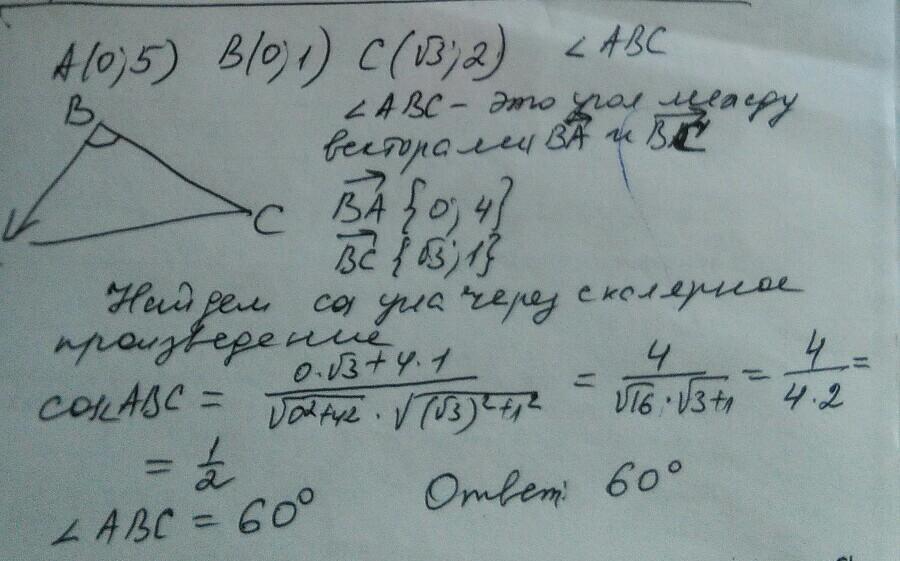 A(0;5) B(0;1) C(√3;2) ∠ABC
∠ABC - это угол между
векторами BA и BC
B
C
BA {0; 4}
BC {√3; 1}
Найдем cos угла через скалярное
произведение
cos ABC = (0·√3+4·1)/(√0²+4² · √(√3)²+1²) = 4/(√16·√3+1) = 4/(4·2) =
= 1/2
∠ABC = 60° Ответ: 60°